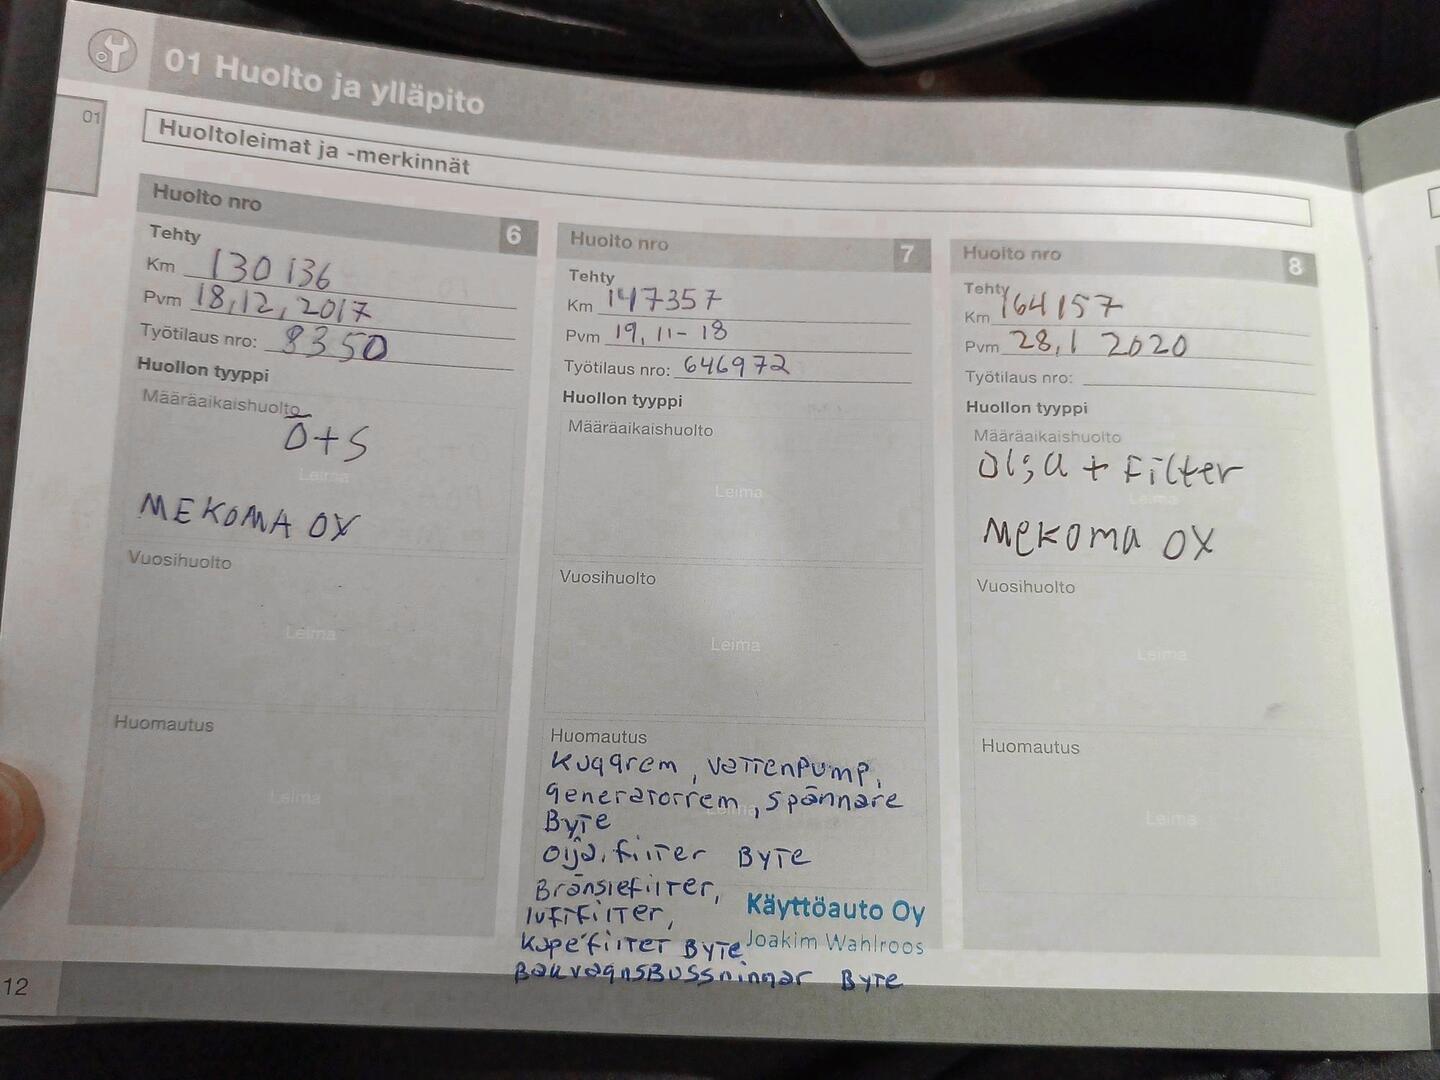 01 Huolto ja ylläpito
01
Huoltoleimat ja -merkinnät
Huolto nro 6
Tehty
Km 130 136
Pvm 18,12, 2017
Työtilaus nro: 8350
Huollon tyyppi
Määräaikaishuolto
Ö+S
Leima
MEKOMA OY
Vuosihuolto
Leima
Huomautus
Leima
Huolto nro 7
Tehty
Km 147357
Pvm 19, 11-18
Työtilaus nro: 646972
Huollon tyyppi
Määräaikaishuolto
Leima
Vuosihuolto
Leima
Huomautus
Kuggrem, vattenpump,
generatorrem, spännare
Leima
Byte
olja, filter Byte
Bränslefilter,
luftfilter,
Kupéfilter Byte
Bakvagnsbussningar Byte
Käyttöauto Oy
Joakim Wahlroos
Huolto nro 8
Tehty
Km 164157
Pvm 28,1 2020
Työtilaus nro:
Huollon tyyppi
Määräaikaishuolto
Olja + Filter
Leima
Mekoma OY
Vuosihuolto
Leima
Huomautus
Leima
12